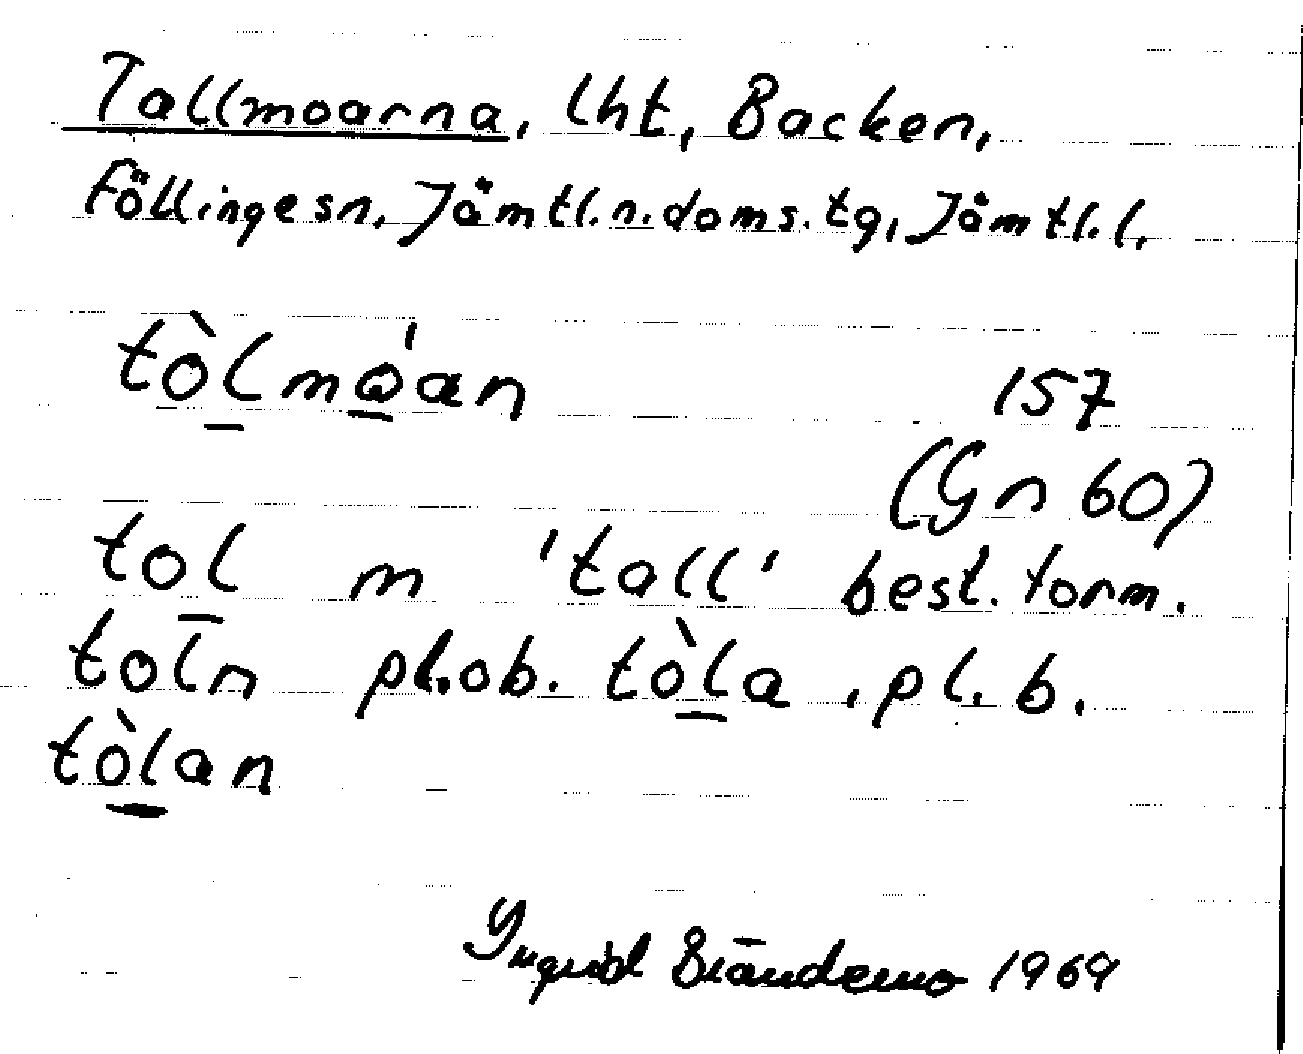 Tallmoarna, lht, Backen,
Föllinge sn, Jämtl.n.doms.tg, Jämtl.l.
tòlmǫ́an
157
(Gn 60)
tol m 'tall' best. form.
toln pl.ob. tòla . pl. b.
tòlan
Ingrid Brändemo 1969